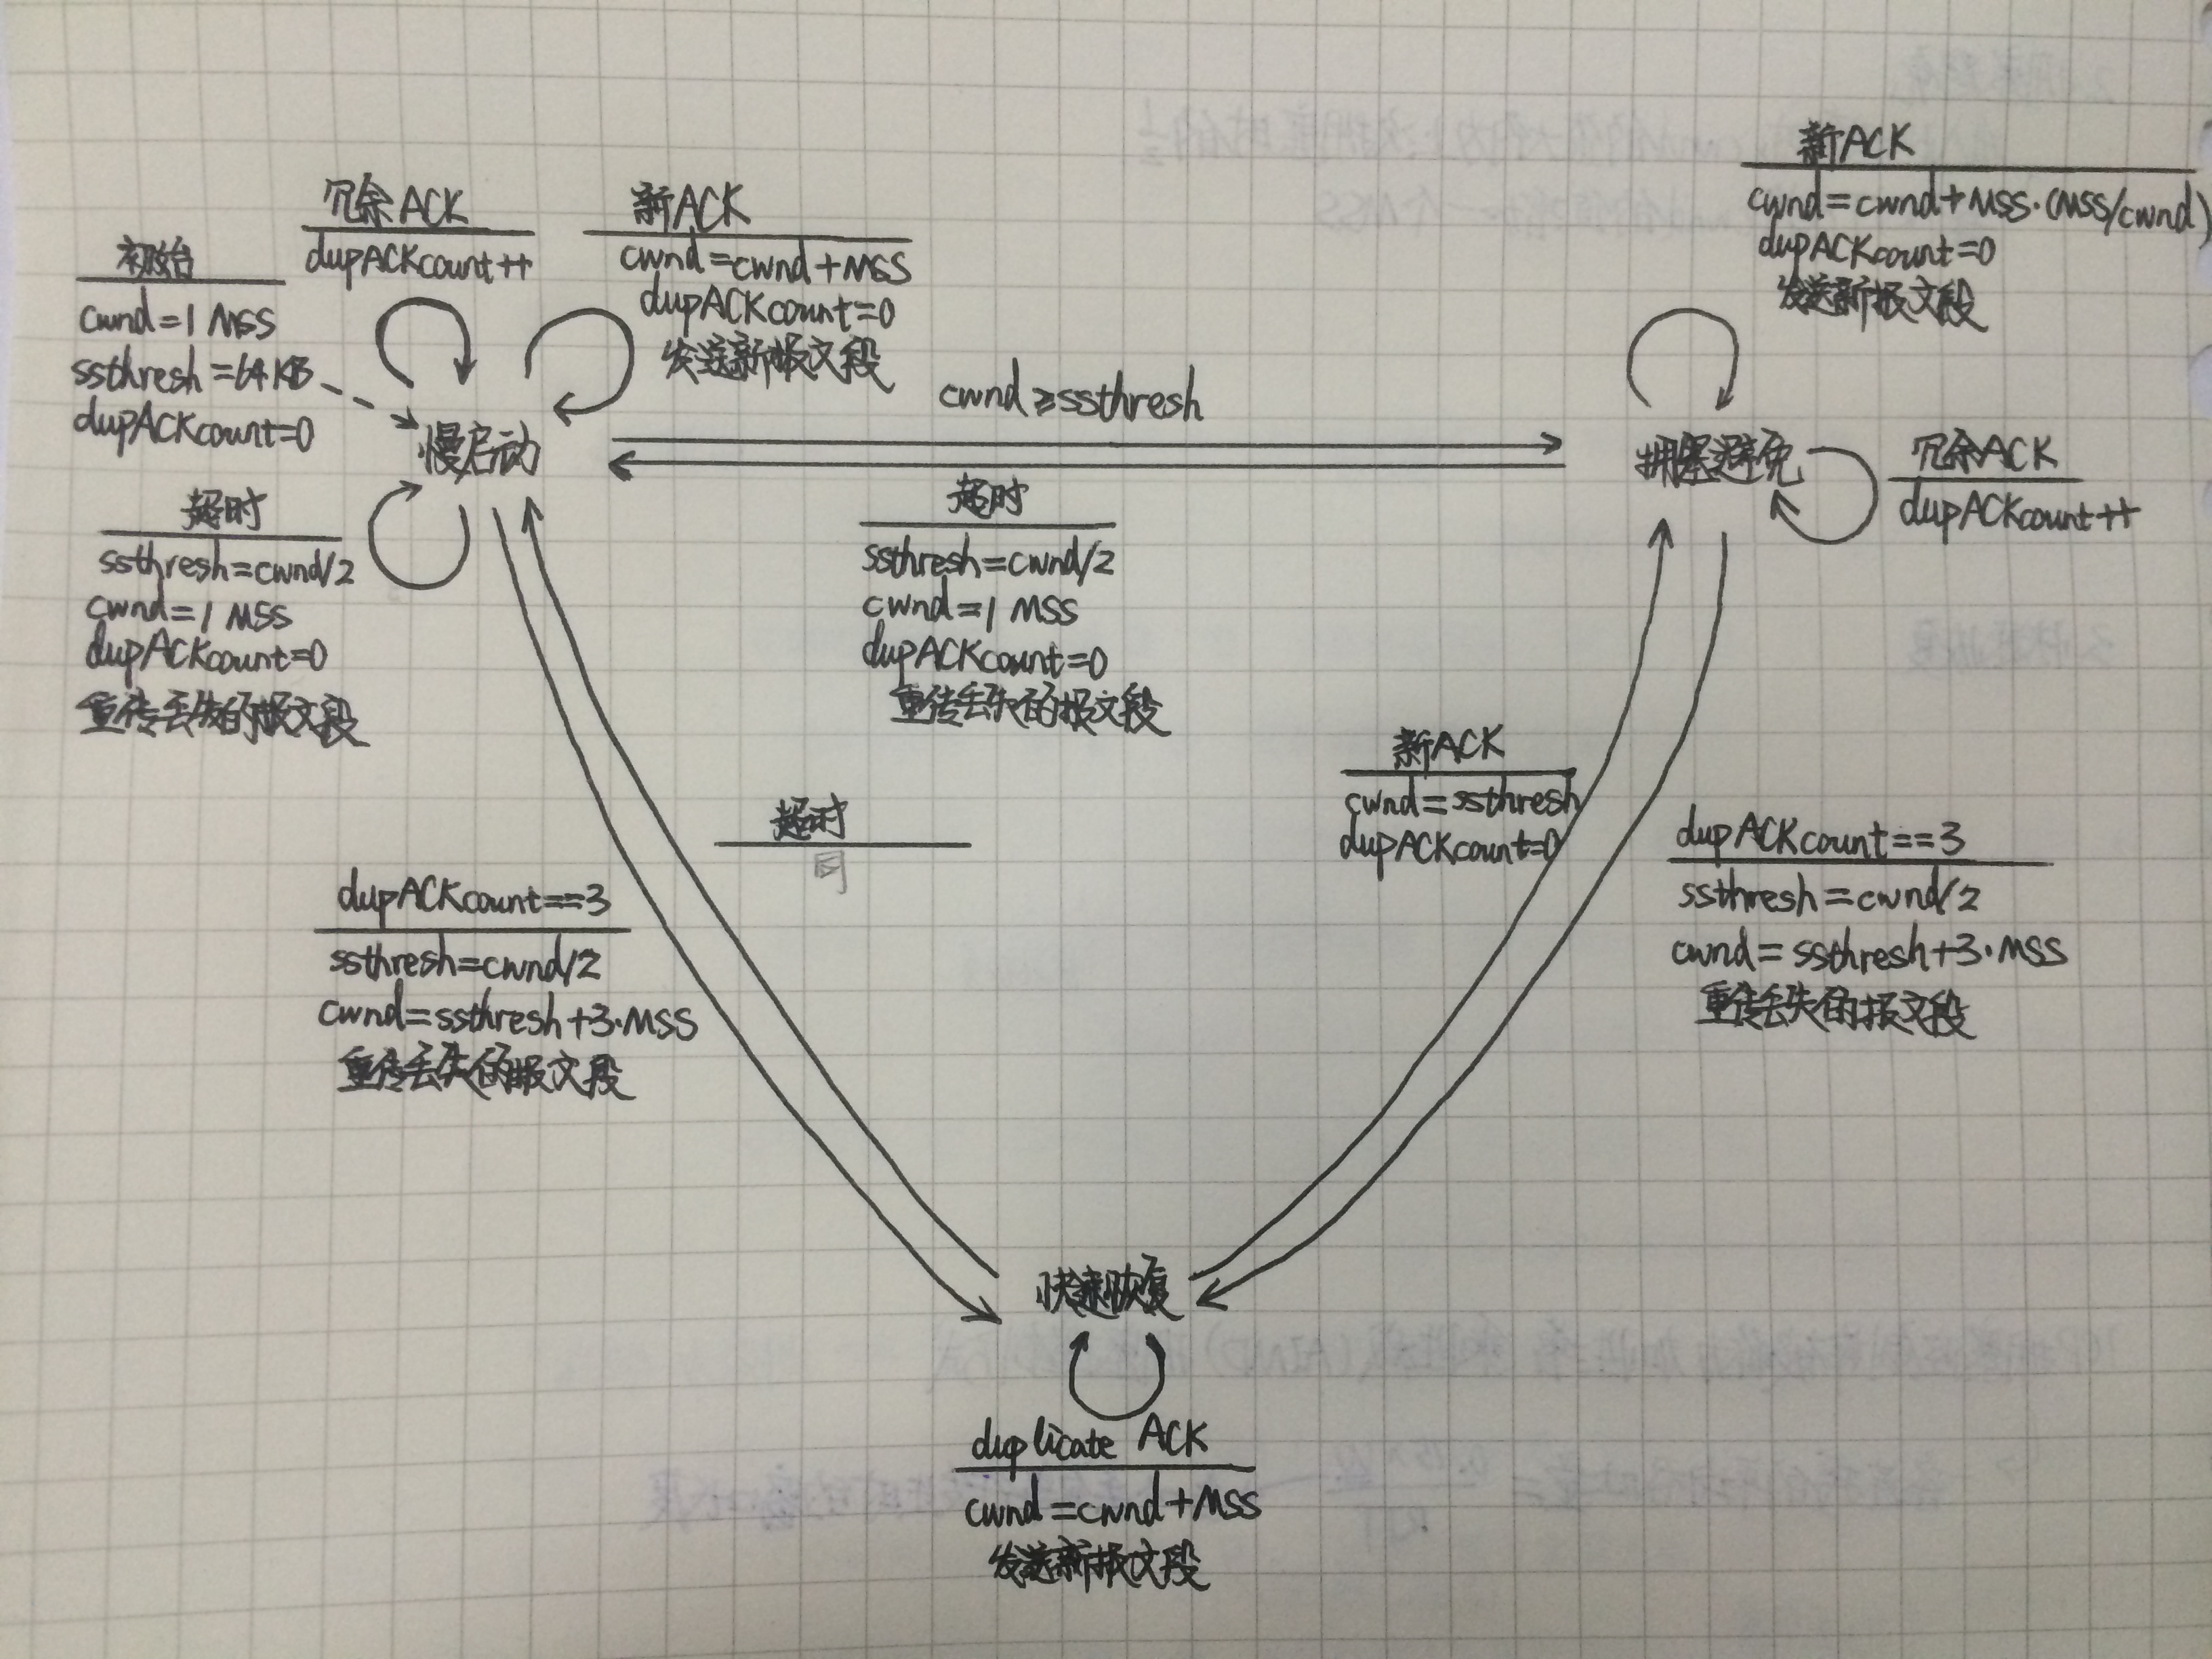 初始
cwnd=1 MSS
ssthresh=64KB
dupACKcount=0
冗余ACK
dupACKcount++
新ACK
cwnd=cwnd+MSS
dupACKcount=0
发送新报文段
慢启动
cwnd≥ssthresh
新ACK
cwnd=cwnd+MSS·(MSS/cwnd)
dupACKcount=0
发送新报文段
拥塞避免
冗余ACK
dupACKcount++
超时
ssthresh=cwnd/2
cwnd=1 MSS
dupACKcount=0
重传丢失的报文段
超时
ssthresh=cwnd/2
cwnd=1 MSS
dupACKcount=0
重传丢失的报文段
超时
同
新ACK
cwnd=ssthresh
dupACKcount=0
dupACKcount==3
ssthresh=cwnd/2
cwnd=ssthresh+3·MSS
重传丢失的报文段
dupACKcount==3
ssthresh=cwnd/2
cwnd=ssthresh+3·MSS
重传丢失的报文段
快速恢复
duplicate ACK
cwnd=cwnd+MSS
发送新报文段